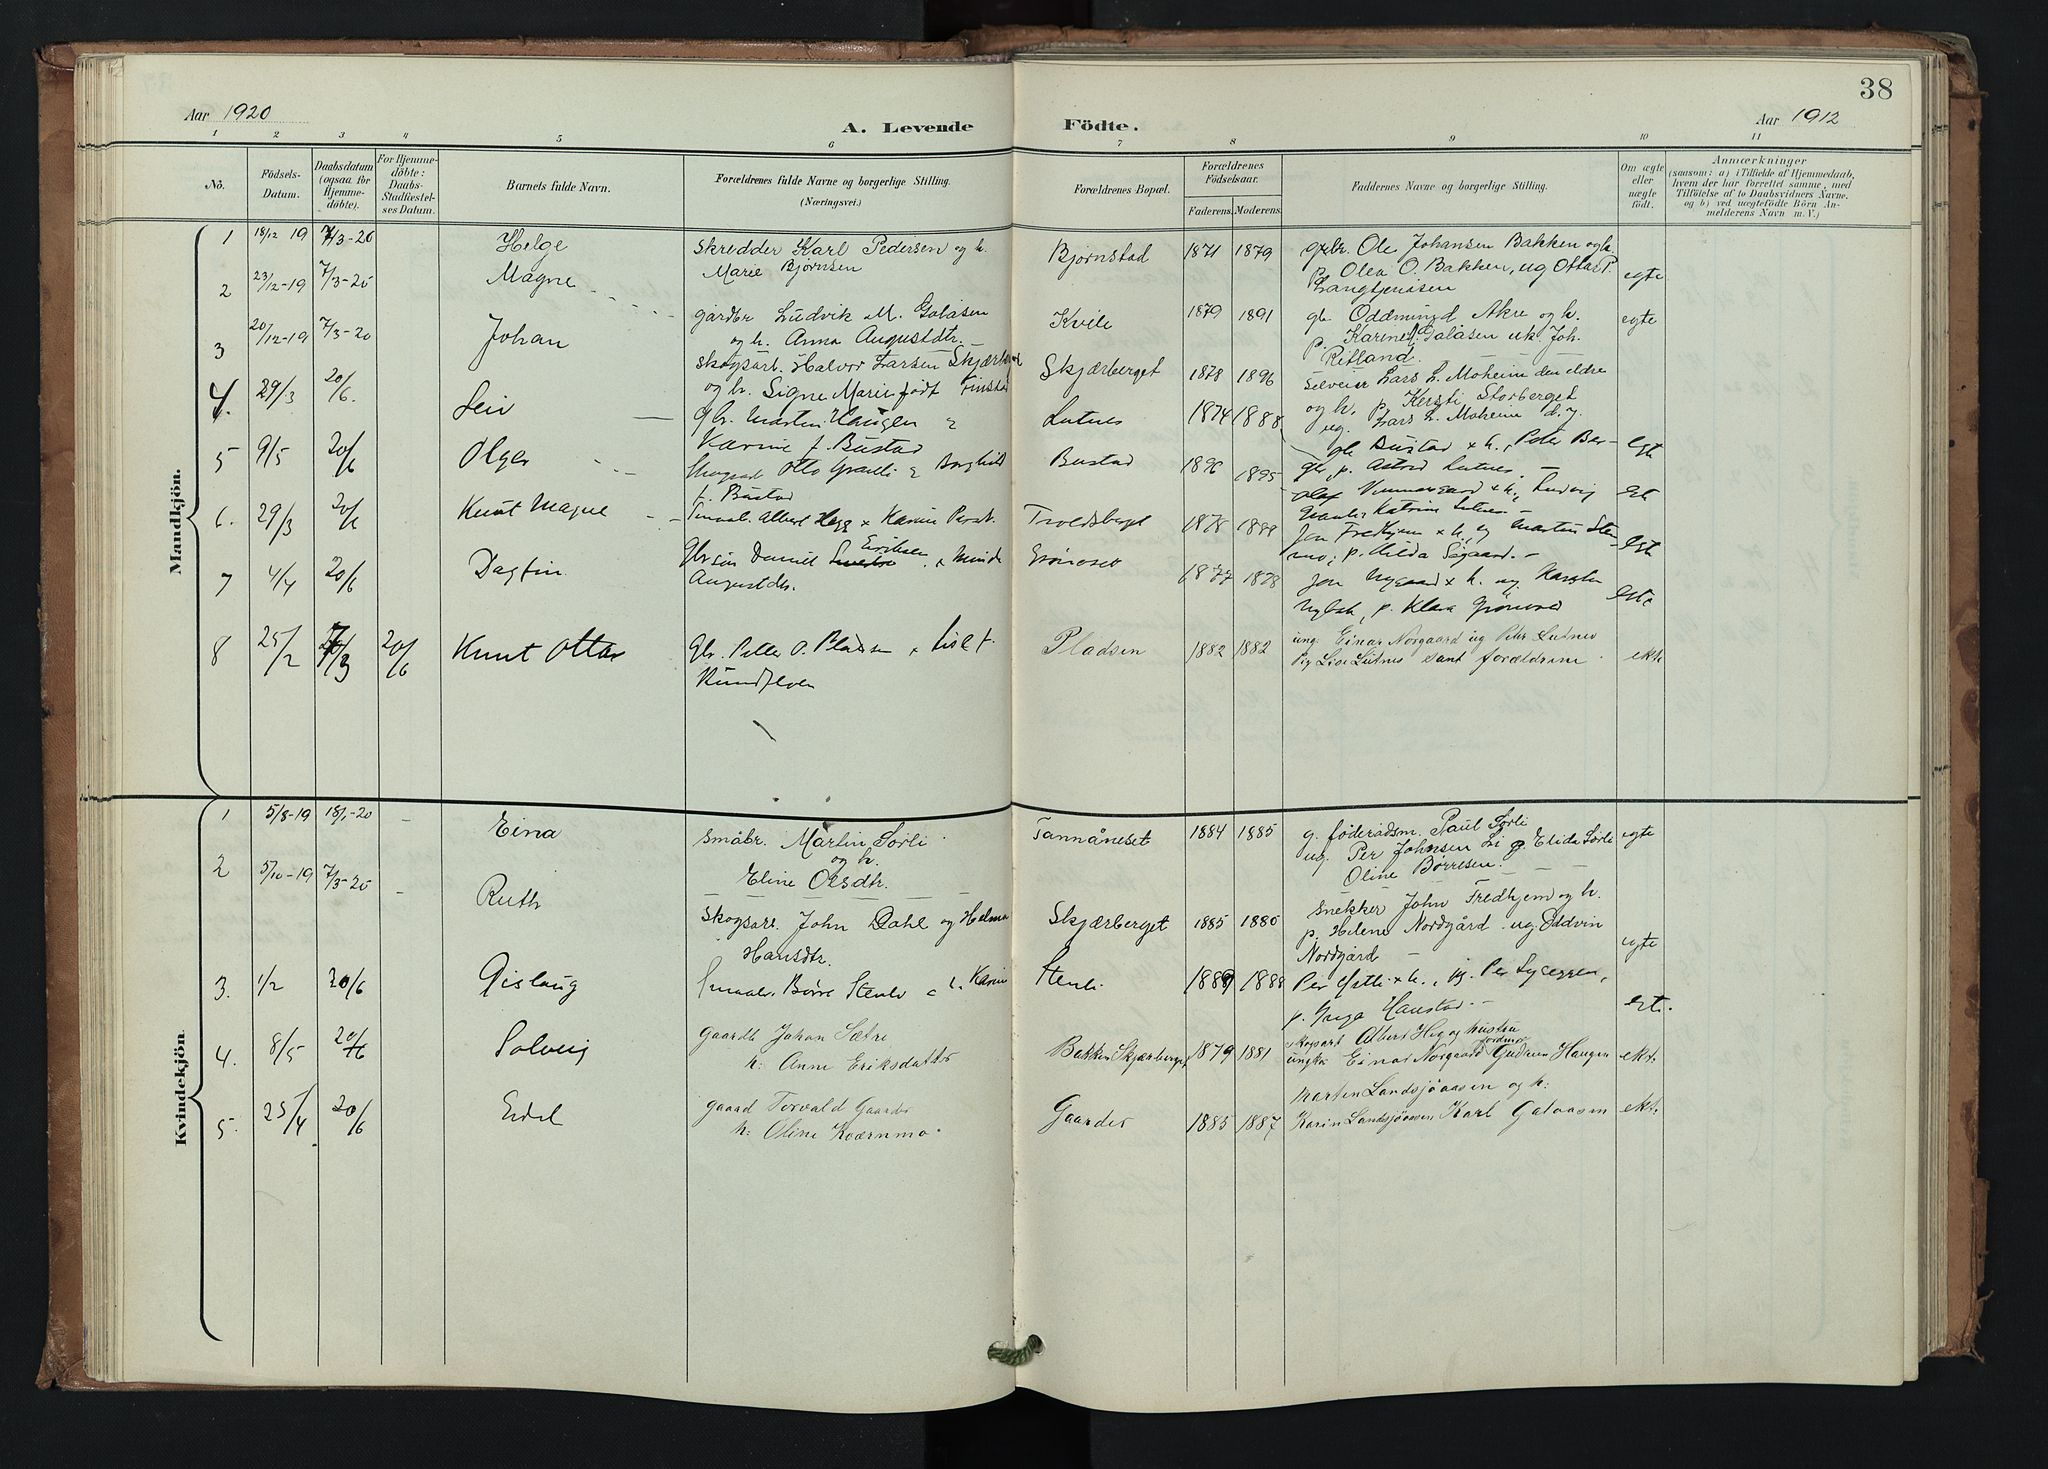 38
Aar 1920
A. Levende Födte.
Aar 1912
1 2 3 4 5 6 7 8 9 10 11
No.
Födsels-
Datum.
Daabsdatum
(ogsaa for
Hjemme-
döbte).
For Hjemme-
döbte:
Daabs-
Stadfæstel-
ses Datum.
Barnets fulde Navn.
Forældrenes fulde Navne og borgerlige Stilling.
(Næringsvei.)
Forældrenes Bopæl.
Forældrenes
Födselsaar.
Faderens. Moderens.
Faddernes Navne og borgerlige Stilling.
Om ægte
eller
uægte
födt.
Anmærkninger
(saasom: a) i Tilfælde af Hjemmedaab,
hvem der har forrettet samme, med
Tilföielse af to Daabsvidners Navne.
og b) ved uægtefödte Börn An-
melderens Navn m. V.)
Mandkjön.
1 18/12 19 7/3-20 Helge
skredder Karl Pedersen og h.
Marie Bjørnsen
Bjørnstad 1871 1879
gbr. Ole Johansen Bakken og h.
p. Olea O. Bakken, ug Ottar P.
Langtjenåsen
egte
2 23/12-19 7/3-20 Magne
gårdbr Ludvik M. Galåsen
og h. Anna Augustdtr.
Kvile 1879 1891
gb. Oddmund Akre og h.
p. Karine Galåsen uk. Joh.
Rifland.
egte
3 20/12-19 7/3-20 Johan
skogsarb. Halvor Larsen Skjærberget
og h. Signe Marie født Finstad
Skjærberget 1878 1896
selveier Lars L. Moheim den eldre
og h. p. Kersti Storberget
ug. Lars L. Moheim d. y.
4. 29/3 20/6. Leiv
Gbr. Martin Haugen
Karine f. Bustad
Lutnes 1874 1888
Bustad + h., Peter Ber-
p. Astrid Lutnes
egte
5 9/5 20/6 Olger
Otto Granli Borghild
f. Bustad
Bustad 1896 1895
Olaf + h., Ludvig
Katrine Lutnes
egte
6. 29/3 20/6 Knut Magne
Smaab. Albert Hegg + Karin Persd.
Troldsberget 1878
Jon Fredhjem + h., ug Martin Sten-
mo, p. Hilda Sagaard.
egte
7 4/4 20/6 Dagfin
Gbrsøn Daniel Eriksen + Minda
Augustdtr.
Grønoset 1877 1878
Jon Nygaard + h. ug. Karsten
p. Klara Grønoset
egte
8 25/2 7/3 20/6 Knut Ottar
Gbr. Petter O. Pladsen + Lise f.
Rundfloen
Pladsen 1882 1882
ung. Einar Norgaard ug Petr Lutnes
Pig Lise Lutnes samt forældrene.
ekte
Kvindekjön
1 5/8-19 18/1-20 Eina
småbr. Martin Sørli
og h.
Eline Olsdtr.
Tannåneset 1884 1885
g. føderådsm. Paul Sørli
ug. Per Johnsen Li p. Elida Sørli
Oline Børresen.
egte
2 5/10-19 7/3-20 Ruth
skogsarb. John Dahl og Helma
Hansdtr.
Skjærberget 1885 1880
snekker John Fredhjem og h.
p. Helene Nordgård ug. Oddvin
Nordgård
egte
3. 1/2 20/6 Gislaug
Smaabr. Børre Stenli h. Karin
Stenli 1889 1888
Per Østli + h., ug. Per Lyseggen,
p. Inga Haustad.
egte.
4. 8/5 20/6 Solveig
Gaardb Johan Sætre
h: Anne Eriksdatter
Bakken Skjærberget 1879 1881
skogsarb Albert Heg og hustru
ungkr. Einar Norgaard Gudrun Haugen
ekte.
5. 25/4 20/6 Edel
gaard Torvald Gaarder
h: Oline Kværnmo.
Gaarder 1885 1887
Marten Landsjøaasen og h:
Karin Landsjøaasen Karl Galaasen
ekte.